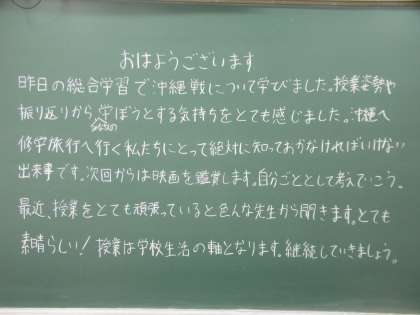 おはようございます
昨日の総合学習で沖縄戦について学びました。授業姿勢や
振り返りから学ぼうとする気持ちをとても感じました。沖縄へ
修学旅行へ行く私たちにとって絶対に知っておかなければいけない
出来事です。次回からは映画を鑑賞します。自分ごととして考えていこう。
最近、授業をとても頑張っていると色んな先生から聞きます。とても
素晴らしい！授業は学校生活の軸となります。継続していきましょう。